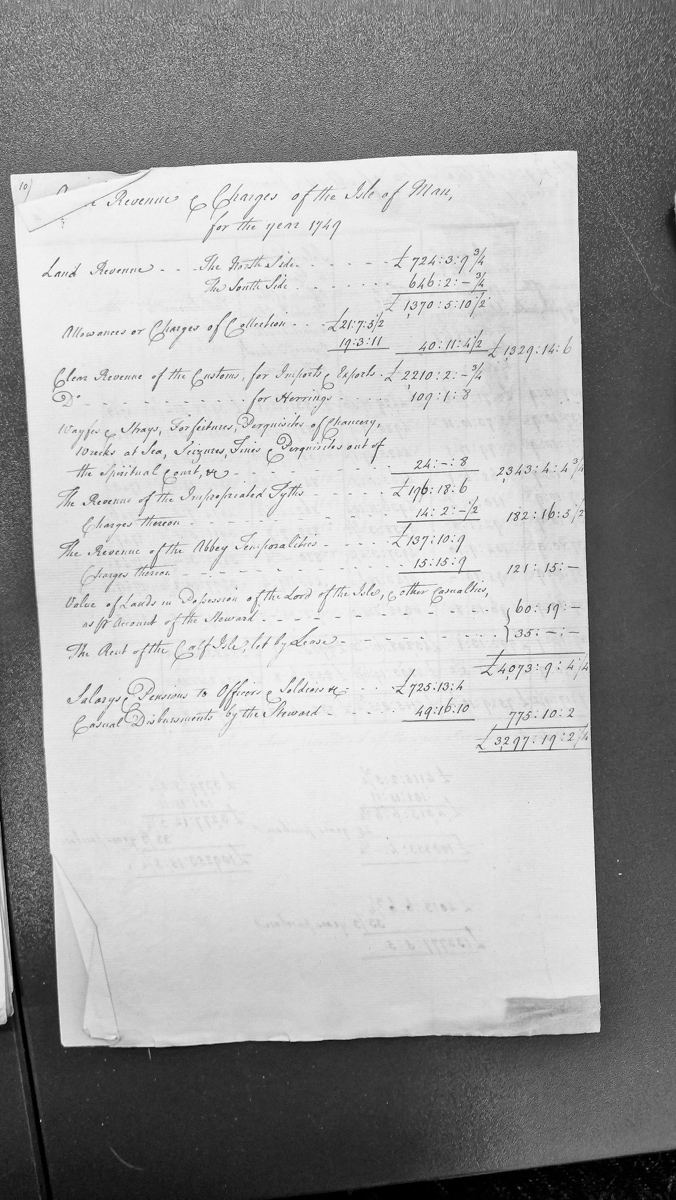 10)
Revenue & Charges of the Isle of Man,
for the year 1749
Land Revenue - - - The North Side - - - - - £724:3:9¾
The South Side - - - - - - 646:2:-¾
£1370:5:10½
Allowances or Charges of Collection - - - £21:7:5½
19:3:11 40:11:4½ £1329:14:6
Clear Revenue of the Customs, for Imports & Exports - £2210:2:-¾
Do - - - - - - - - - - - for Herrings - - - - 109:1:8
Wayfs & Strays, Forfeitures, Perquisites of Chancery,
Wrecks at Sea, Seizures, Fines & Perquisites out of
the Spiritual Court, &c - - - - - - - - - 24:-:8 2343:4:4¾
The Revenue of the Impropriated Tyths - - - - - £196:18:6
Charges thereon - - - - - - - - - - - 14:2:-½ 182:16:5½
The Revenue of the Abbey Temporalities - - - - - £137:10:9
Charges thereon - - - - - - - - - - - - 15:15:9 121:15:-
Value of Lands in Possession of the Lord of the Isle, & other Casualties,
as pr Account of the Steward - - - - - - - - - - 60:19:-
The Rent of the Calf Isle, let by Lease - - - - - - - - - 35:-:-
£4073:9:4¼
Salarys & Pensions to Officers & Soldiers &c - - - - £725:13:4
Casual Disbursments by the Steward - - - - 49:16:10 775:10:2
£3297:19:2¼